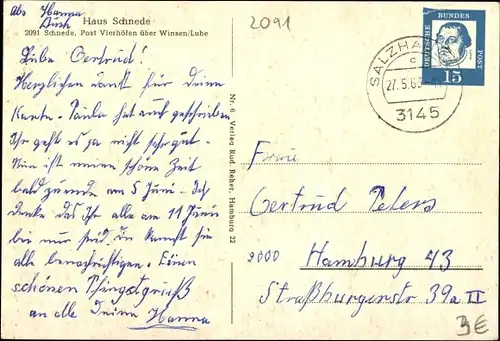 Abs Hanna
Haus Schnede
2091 Schnede, Post Vierhöfen über Winsen/Luhe
Liebe Gertrud!
Herzlichen Dank für Deine
Karte. Paula hat auch geschrieben
Ihr geht es ja nicht sehr gut.
Nun ist meine schöne Zeit
bald zuende am 5 Juni. Ich
denke das Ihr alle am 11 Juni
bei mir seid. Du kannst sie
alle benachrichtigen. Einen
schönen Pfingstgruß
an alle Deine Hanna
Nr. 6 Verlag Rud. Reher, Hamburg 22
2091
DEUTSCHE BUNDES POST
15
SALZHA
c
27.5.63
3145
Frau
Gertrud Peters
2000 Hamburg 43
Straßburgerstr 39a II
3€